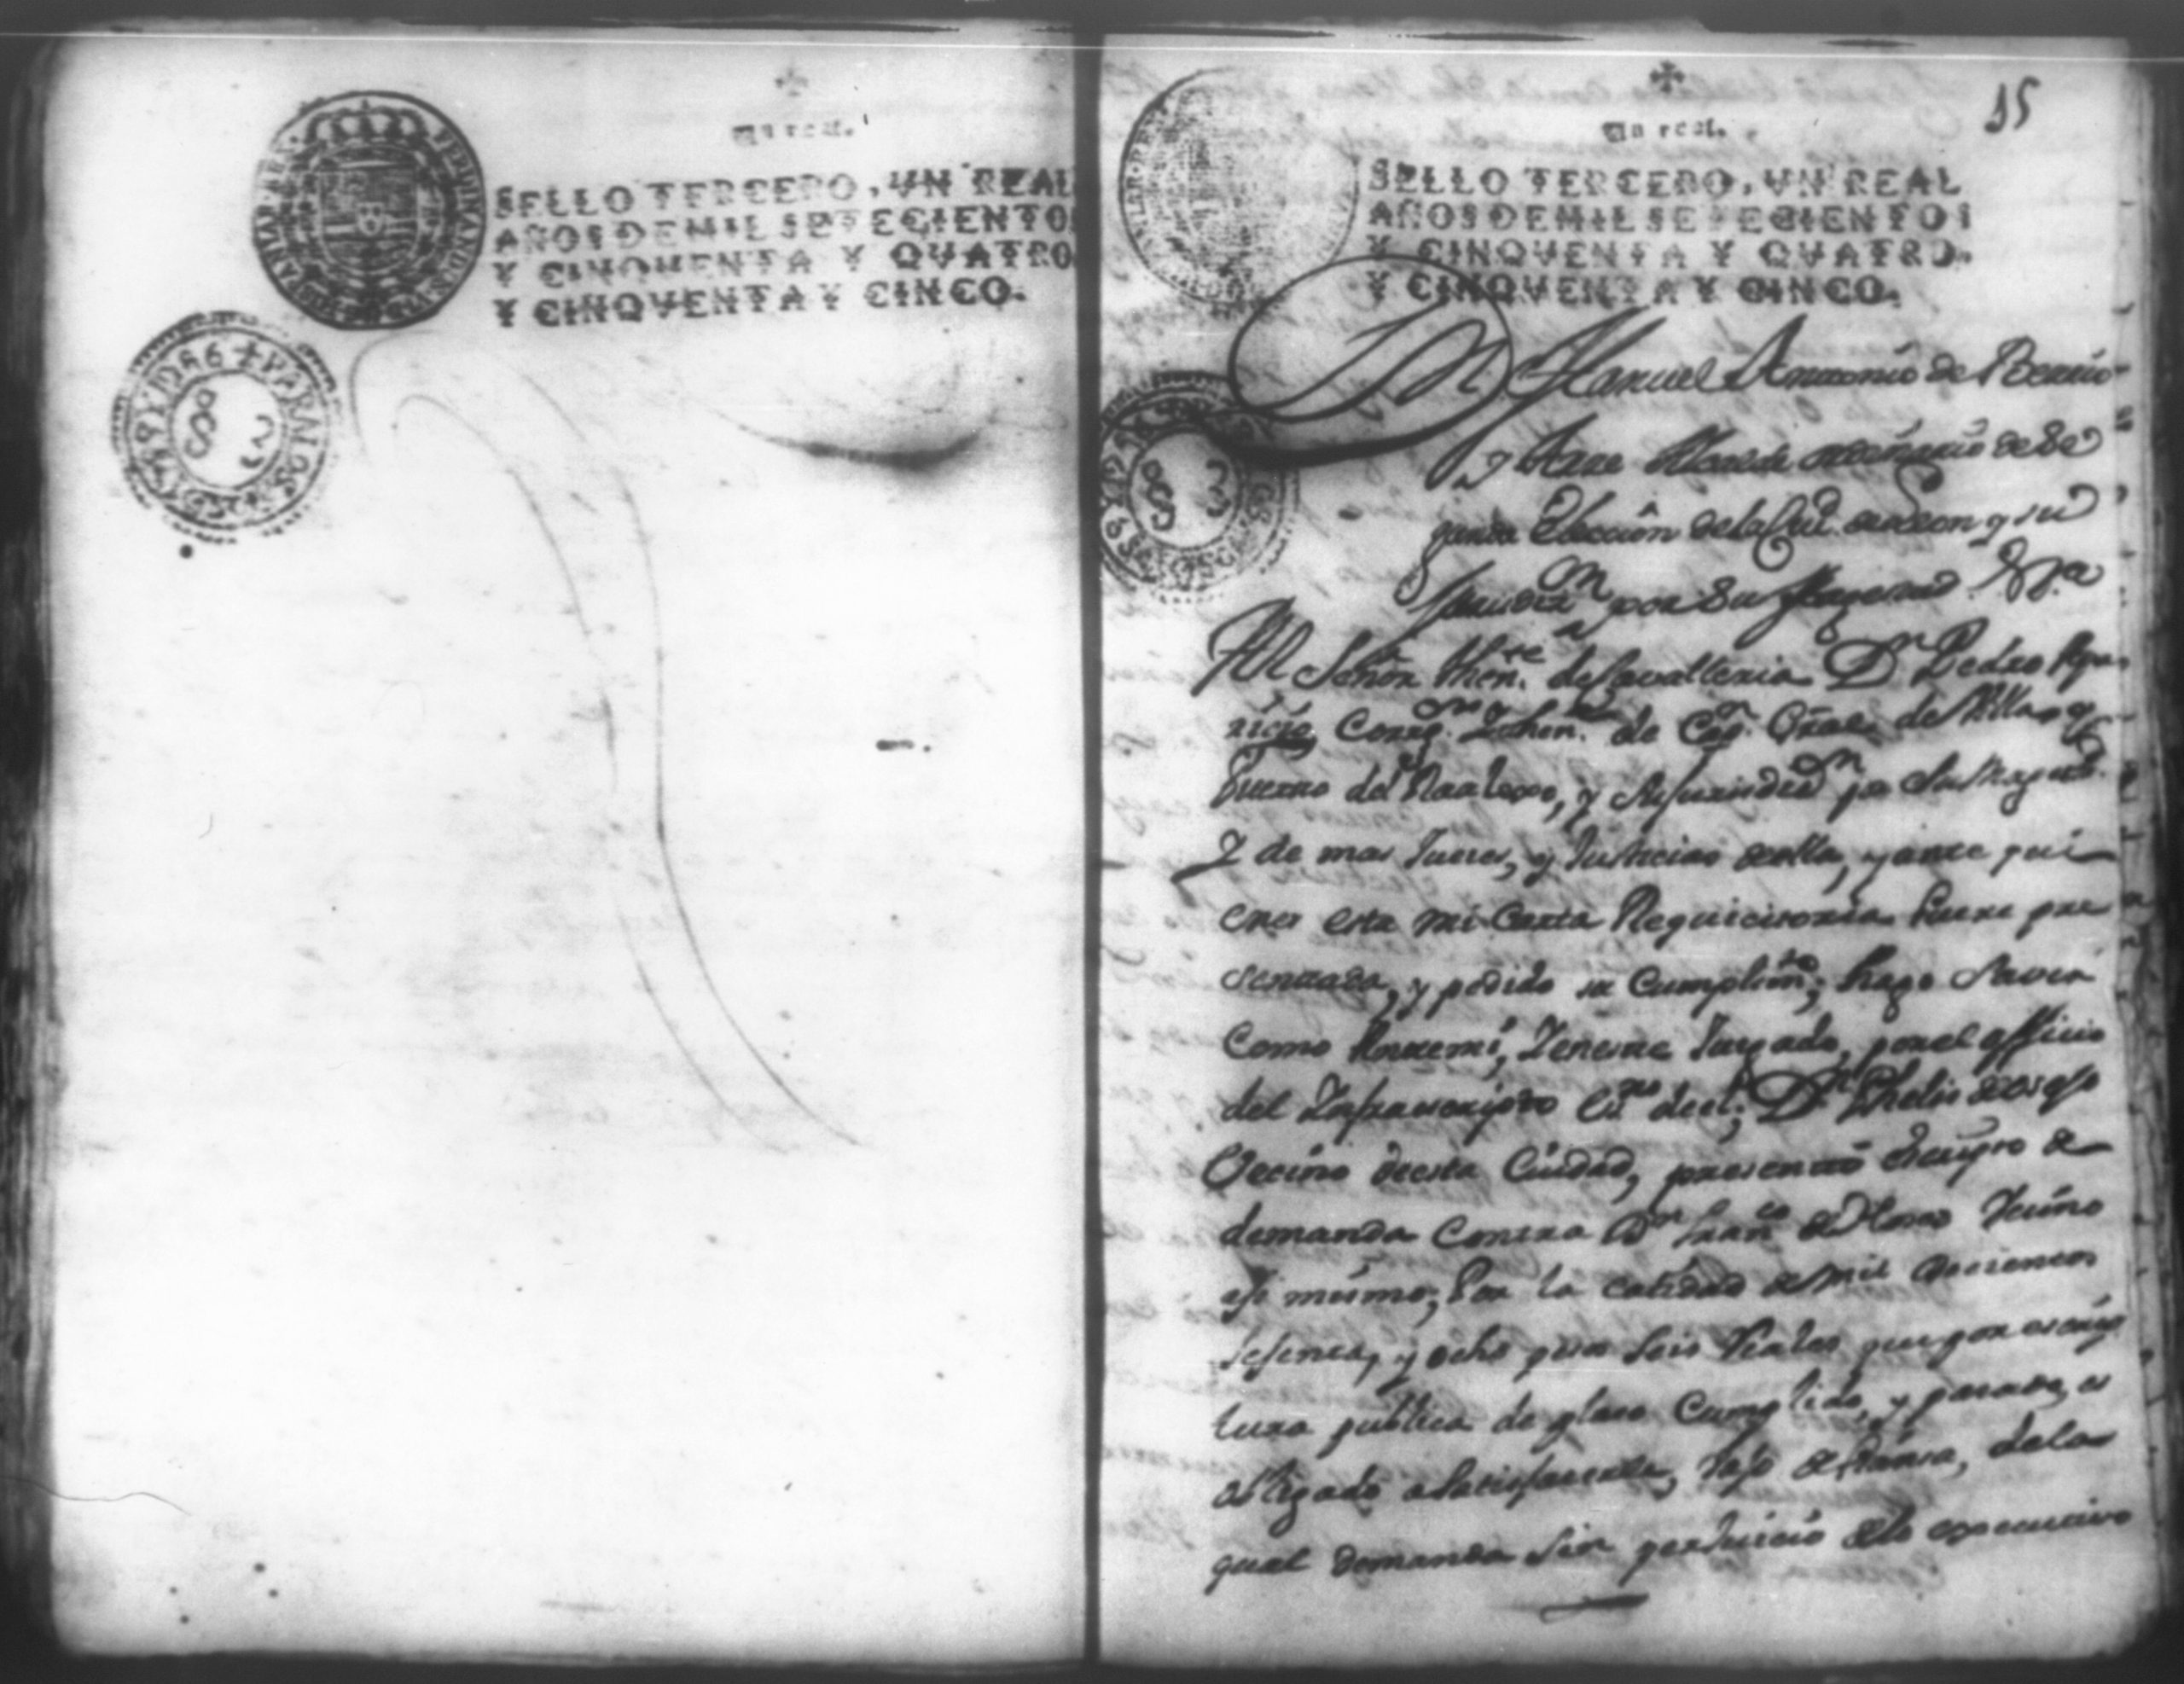 Un real.
SELLO TERCERO, UN REAL
AÑOS DE MIL SETECIENTOS
Y CINQVENTA Y QVATRO
Y CINQVENTA Y CINCO.
15
Un real.
SELLO TERCERO, VN REAL
AÑOS DE MIL SETECIENTOS
Y CINQVENTA Y QVATRO.
Y CINQVENTA Y CINCO.
Dn. Manuel Antonio de Berrio
y Alcalde ordinario de Se
gunda Eleccion dela Ciud. de Leon y su
Jurisdizn por Su Magestad &a
Al Señor Thente. de Cavalleria Dn Pedro Apa
ricio, Corregor. y Thente. de Capn. Gral. de Villa y
Puerto del Realexo, y su Jurisdicn pr Su Magestd.
Y de mas Jueces, y Justicias de ella, y ante qui
enes esta mi Carta Requicitoria fuere pre
sentada, y pedido su Cumplimto; hago Saver
Como Antemi, y en este Jusgado, por el officio
del Infraescripto Essno de el; Dn Phelis
Vecino de esta Ciudad, presentó escripto de
demanda Contra Dn Franco de Vecino
assi mismo; Por la catidad de mil docientos
sesenta, y ocho pesos seis Reales que por escrip
tura publica de plaso Cumplido, y pasado, es
obligado a satisfacerle, bajo de fianza, dela
qual demanda sin perjuicio de lo executivo